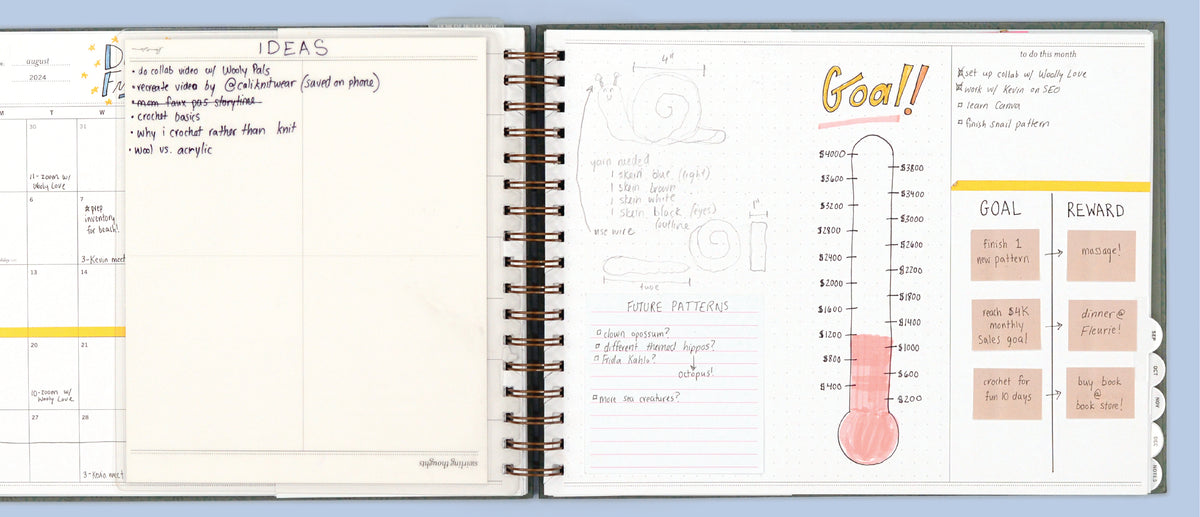 august
2024
T
W
30
31
11-zoom w/
Wooly Love
6
7
*prep
inventory
for beach!
3-Kevin meet
13
14
20
21
10-zoom w/
Wooly Love
27
28
meet
IDEAS
• do collab video w/ Wooly Pals
• recreate video by @caliknitwear (saved on phone)
• mom faux pas storytime
• crochet basics
• why i crochet rather than knit
• wool vs. acrylic
swirling thoughts
4"
yarn needed
1 skein blue (light)
1 skein brown
1 skein white
1 skein black (eyes)
outline
use wire
1"
tube
FUTURE PATTERNS
clown opossum?
different themed hippos?
Frida Kahlo?
octopus!
more sea creatures?
Goal!!
$4000
$3800
$3600
$3400
$3200
$3000
$2800
$2600
$2400
$2200
$2000
$1800
$1600
$1400
$1200
$1000
$800
$600
$400
$200
to do this month
set up collab w/ Woolly Love
work w/ Kevin on SEO
learn Canva
finish snail pattern
GOAL
REWARD
finish 1
new pattern
massage!
reach $4K
monthly
sales goal
dinner @
Fleurie!
crochet for
fun 10 days
buy book
@
book store!
SEP
OCT
NOV
DEC
NOTES